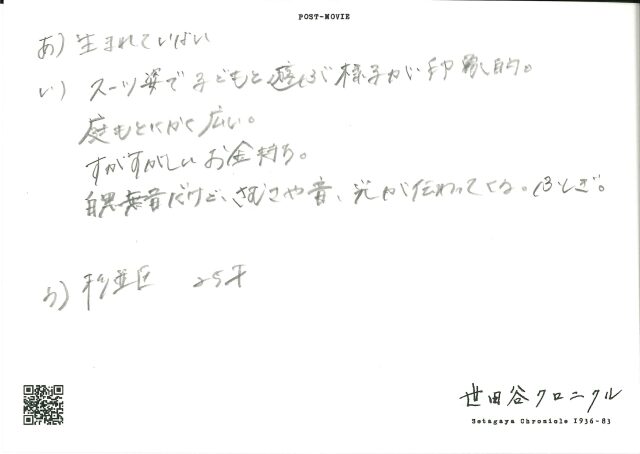 POST-MOVIE
あ) 生まれていない
い) スーツ姿で子どもと遊ぶ様子が印象的。
庭もとにかく広い。
すがすがしいお金持ち。
白黒無音だけど、さむさや音、光が伝わってくる。ふしぎ。
う) 杉並区 25年
世田谷クロニクル
Setagaya Chronicle 1936-83